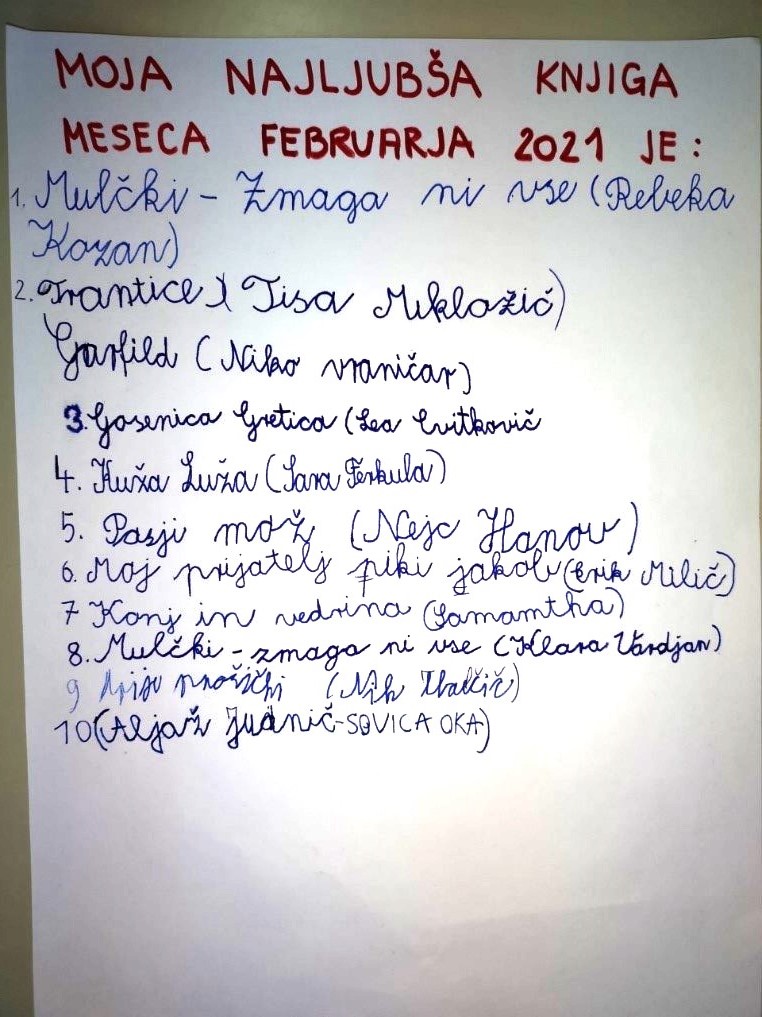 MOJA NAJLJUBŠA KNJIGA
MESECA FEBRUARJA 2021 JE:
1. Mulčki - Zmaga ni vse (Rebeka
Kozan)
2. Trantice (Tisa Miklažič)
Garfild (Niko vraničar)
3. Gosenica Gretica (Lea Cvitkovič
4. Kuža Luža (Sara Ferkula)
5. Pasji mož (Nejc Hanov)
6. Moj prijatelj piki jakob (Erik Milič)
7 Konj in vedrina (Samamtha)
8. Mulčki - zmaga ni vse (Klara Vardjan)
9 prašički (Nik
10 (Aljaž Judnič-SOVICA OKA)